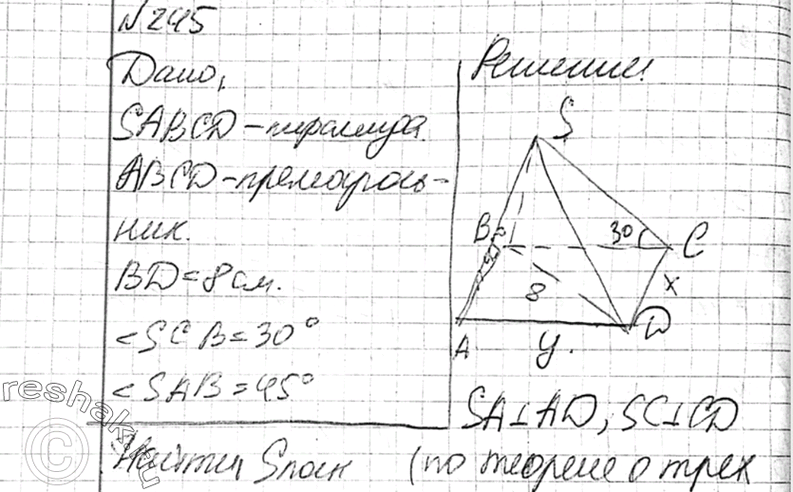 №245
Дано,
SABCD – пирамида.
ABCD – прямоуголь-
ник.
BD = 8 см.
<SCB = 30°
<SAB = 45°
Найти, Sполн
Решение!
S
B
30
C
8
x
A
D
y.
SA⊥AD, SC⊥CD
(по теореме о трех
reshak.ru
©